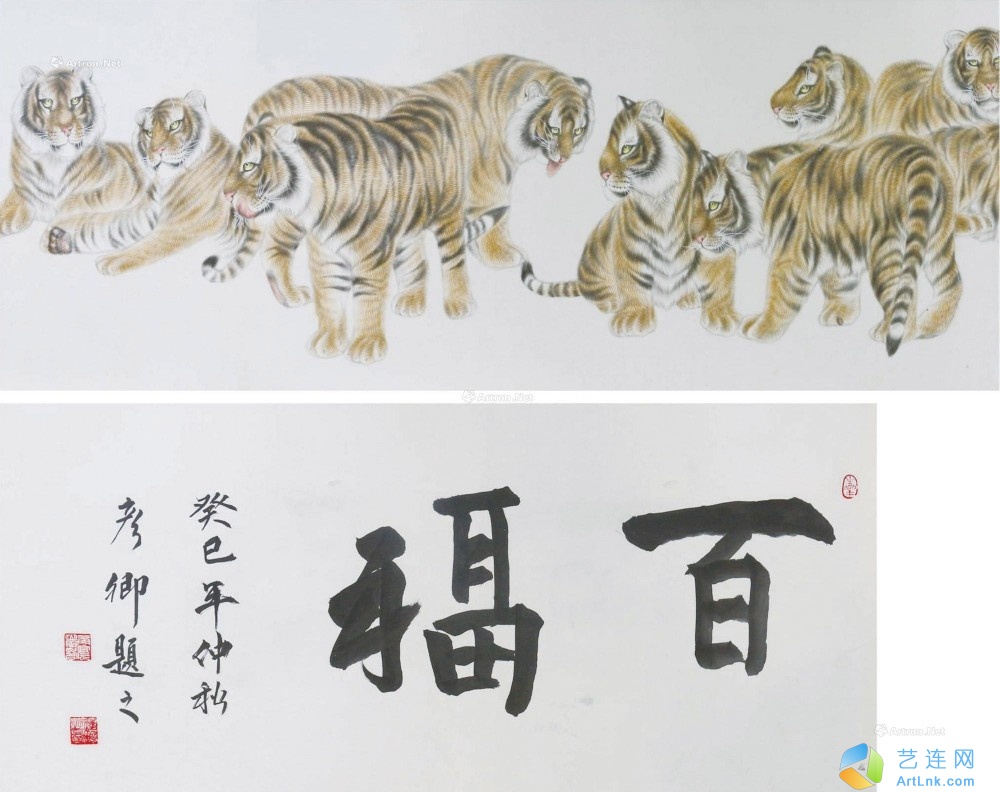 Artron.Net
Artron.Net
百福
癸巳年仲秋
彦卿題之
Artron.Net
艺连网
ArtLnk.com